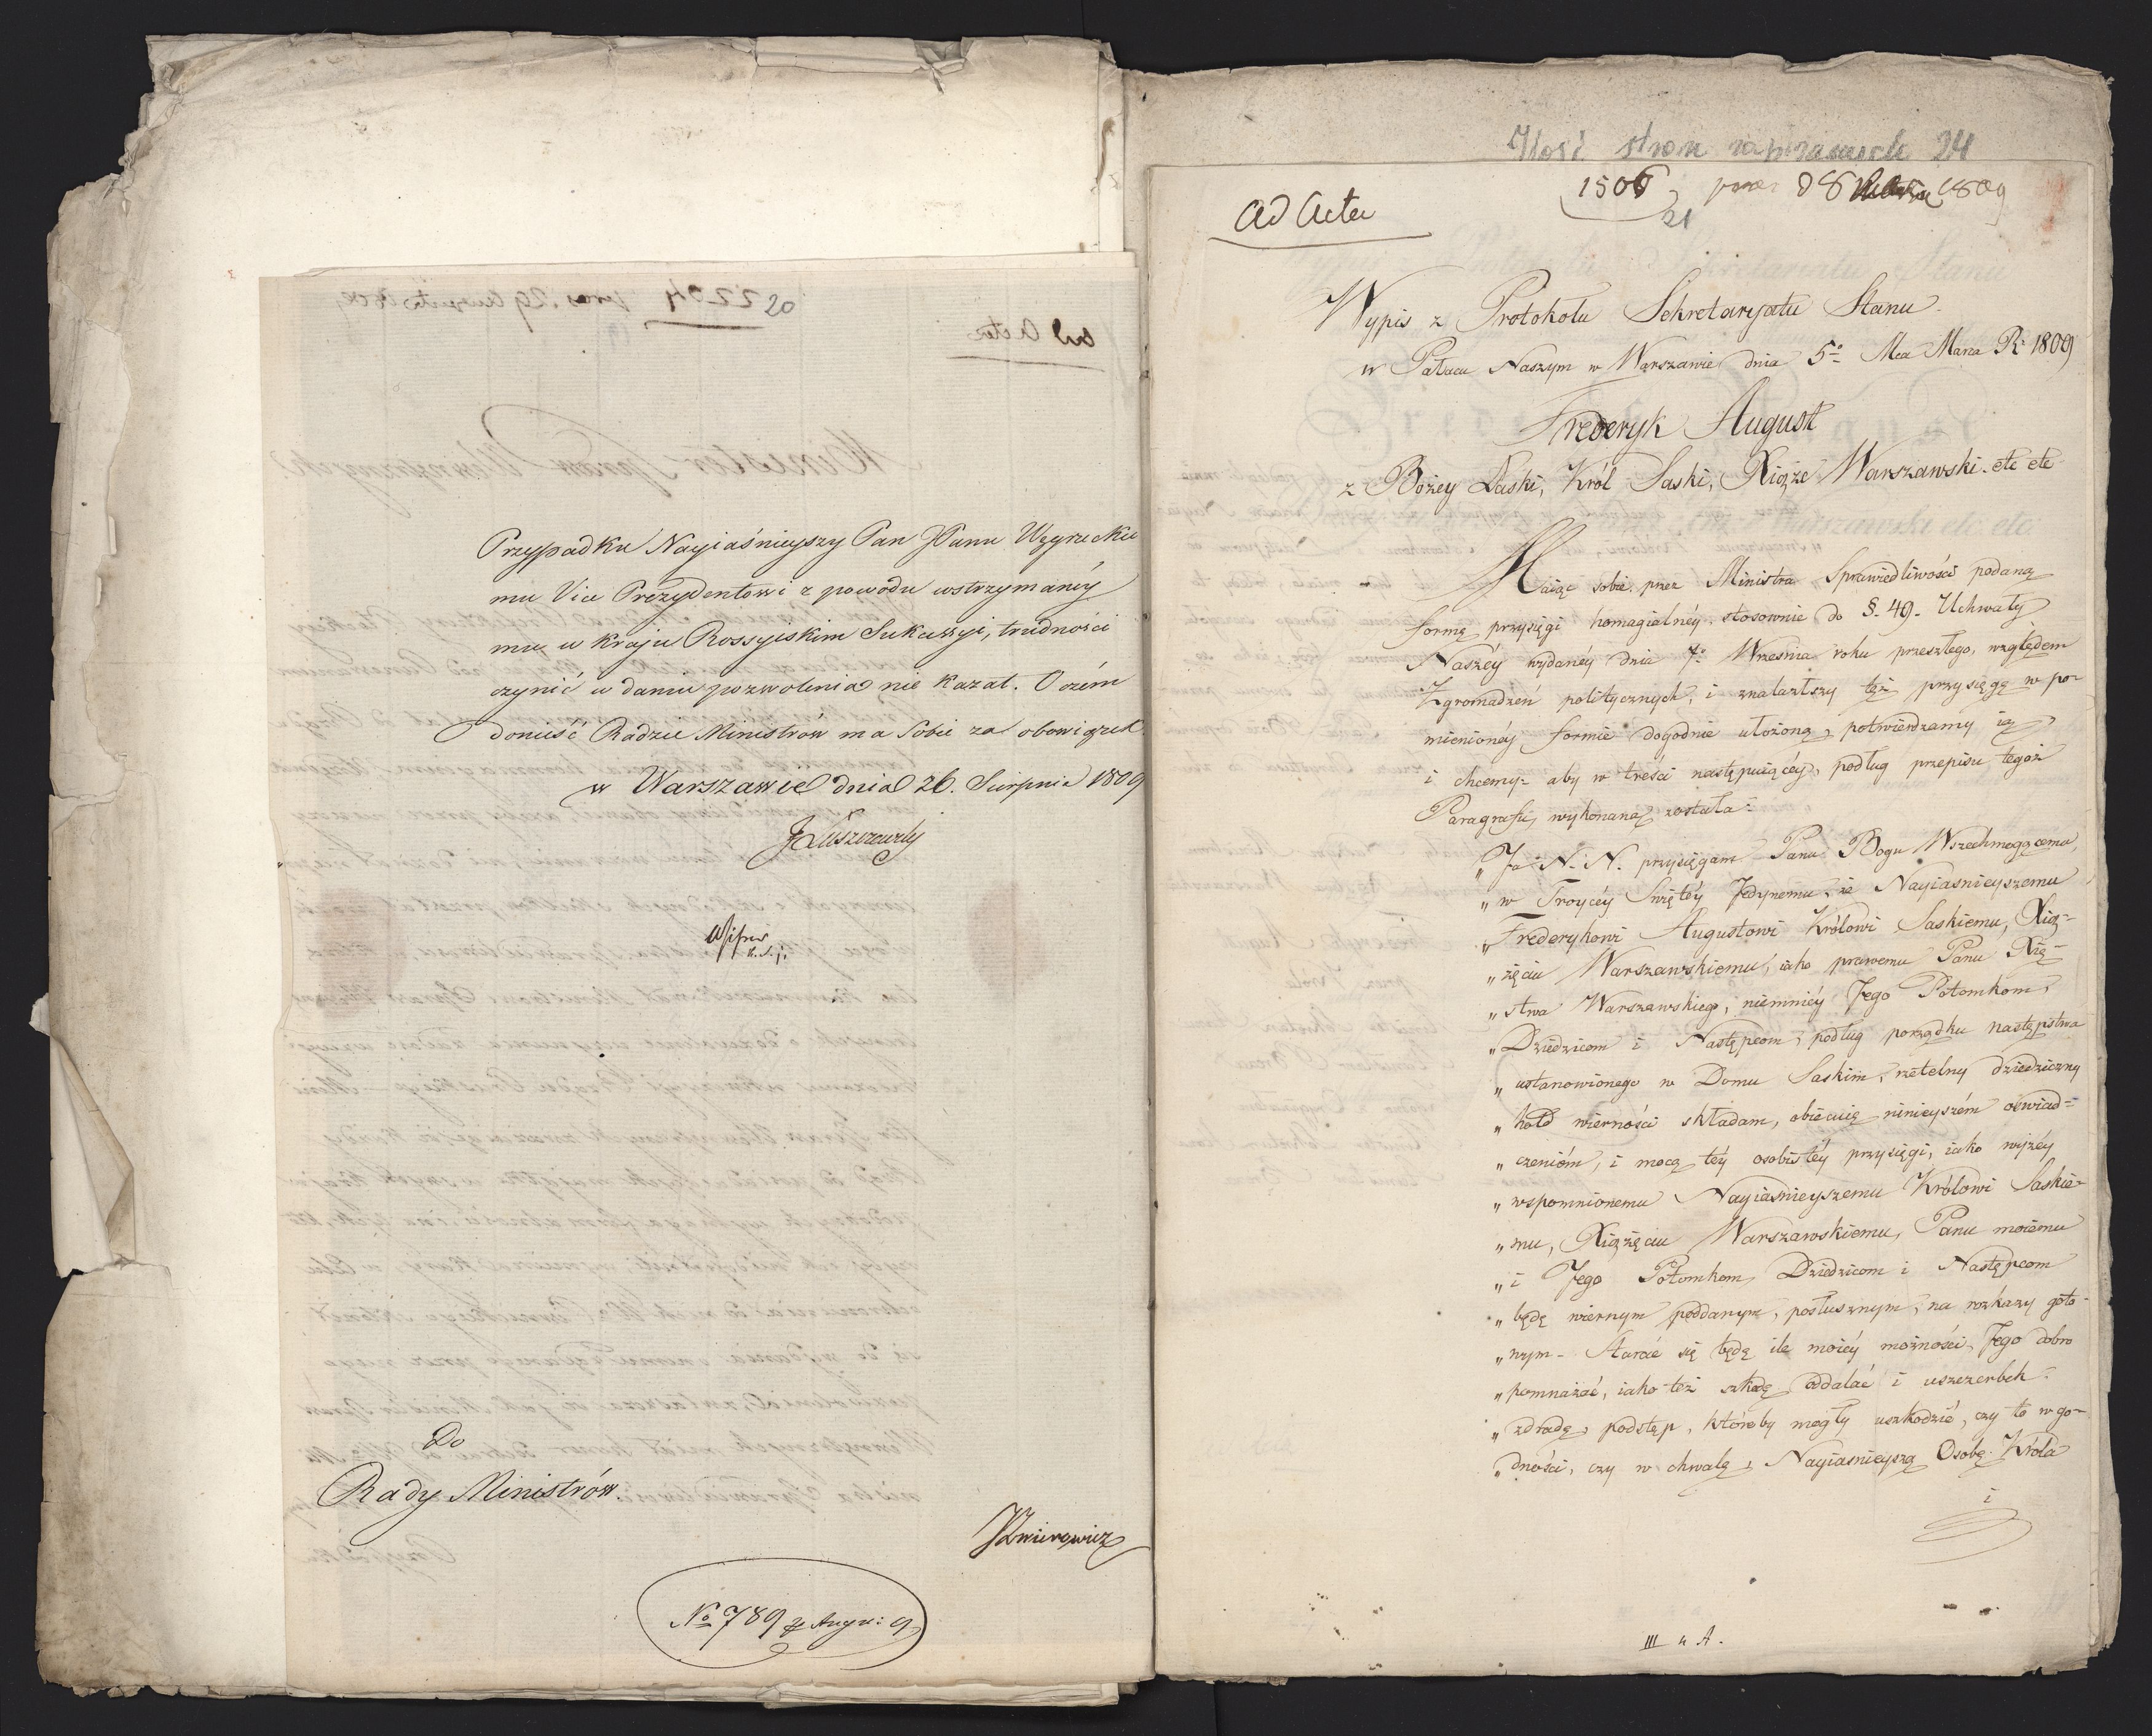 Przypadku Nayiaśnieyszy Pan JPanu Węgrzeckie
mu Vice Prezydentowi z powodu wstrzymanéy
mu w kraju Rossyiskim Sukcessyi, trudności
czynić w daniu pozwolenia nie kazał. O czém
donieść Radzie Ministrów ma Sobie za obowiązek.
w Warszawie dnia 26. Sierpnia 1809
JŁuszczewski
Do
Rady Ministrów.
No 789 Augu: 9
Ilość stron zapisanych 24
1506 1809
21
Ad Acta
Wypis z Protokołu Sekretaryatu Stanu
w Pałacu Naszym w Warszawie dnia 5o Mca Marca R: 1809
Frederyk August
z Bożey Łaski, Król Saski, Xiąże Warszawski. etc etc
Maiąc sobie przez Ministra Sprawiedliwości podaną
formę przysięgi homagialnéy stosownie do §. 49. Uchwały
Naszéy wydanéy dnia 7o Września roku przeszłego, względem
Zgromadzeń politycznych, i znalazłszy tęż przysięgę w po-
mienionéy formie dogodnie ułożoną, potwierdzamy ią
i chcemy aby w treści następuiącéy, podług przepisu tegoż
Paragrafu, wykonaną została.
„Ja N. N. przysięgam Panu Bogu Wszechmogącemu,
„w Troycéy Swiętéy Jedynemu, iż Nayiasnieyszemu
„Frederykowi Augustowi Królowi Saskiemu, Xią-
„żęciu Warszawskiemu, iako prawemu Panu Xię-
„stwa Warszawskiego, niemniéy Jego Potomkom,
„Dziedzicom i Następcom, podług porządku następstwa
„ustanowionego w Domu Saskim, rzetelny dziedziczny
„hołd wierności składam, obiecuię ninieyszém oświad-
„czeniém, i mocą téy osobistéy przysięgi, iako wyżéy
„wspomnionemu Nayiaśnieyszemu Królowi Saskie-
„mu, Xiążęciu Warszawskiemu, Panu moiemu
„i Jego Potomkom, Dziedzicom i Następcom
„będę wiernym poddanym, posłusznym, na rozkazy goto-
„wym. Starać się będę ile moiéy możności, Jego dobro
„pomnażać, iako też szkodę oddalać i uszczerbek.
„zdradę, podstęp, któreby mogły uszkodzić, czy to w go-
„dności, czy w chwale, Nayiasnieyszą Osobę Króla
i
III 4 A.